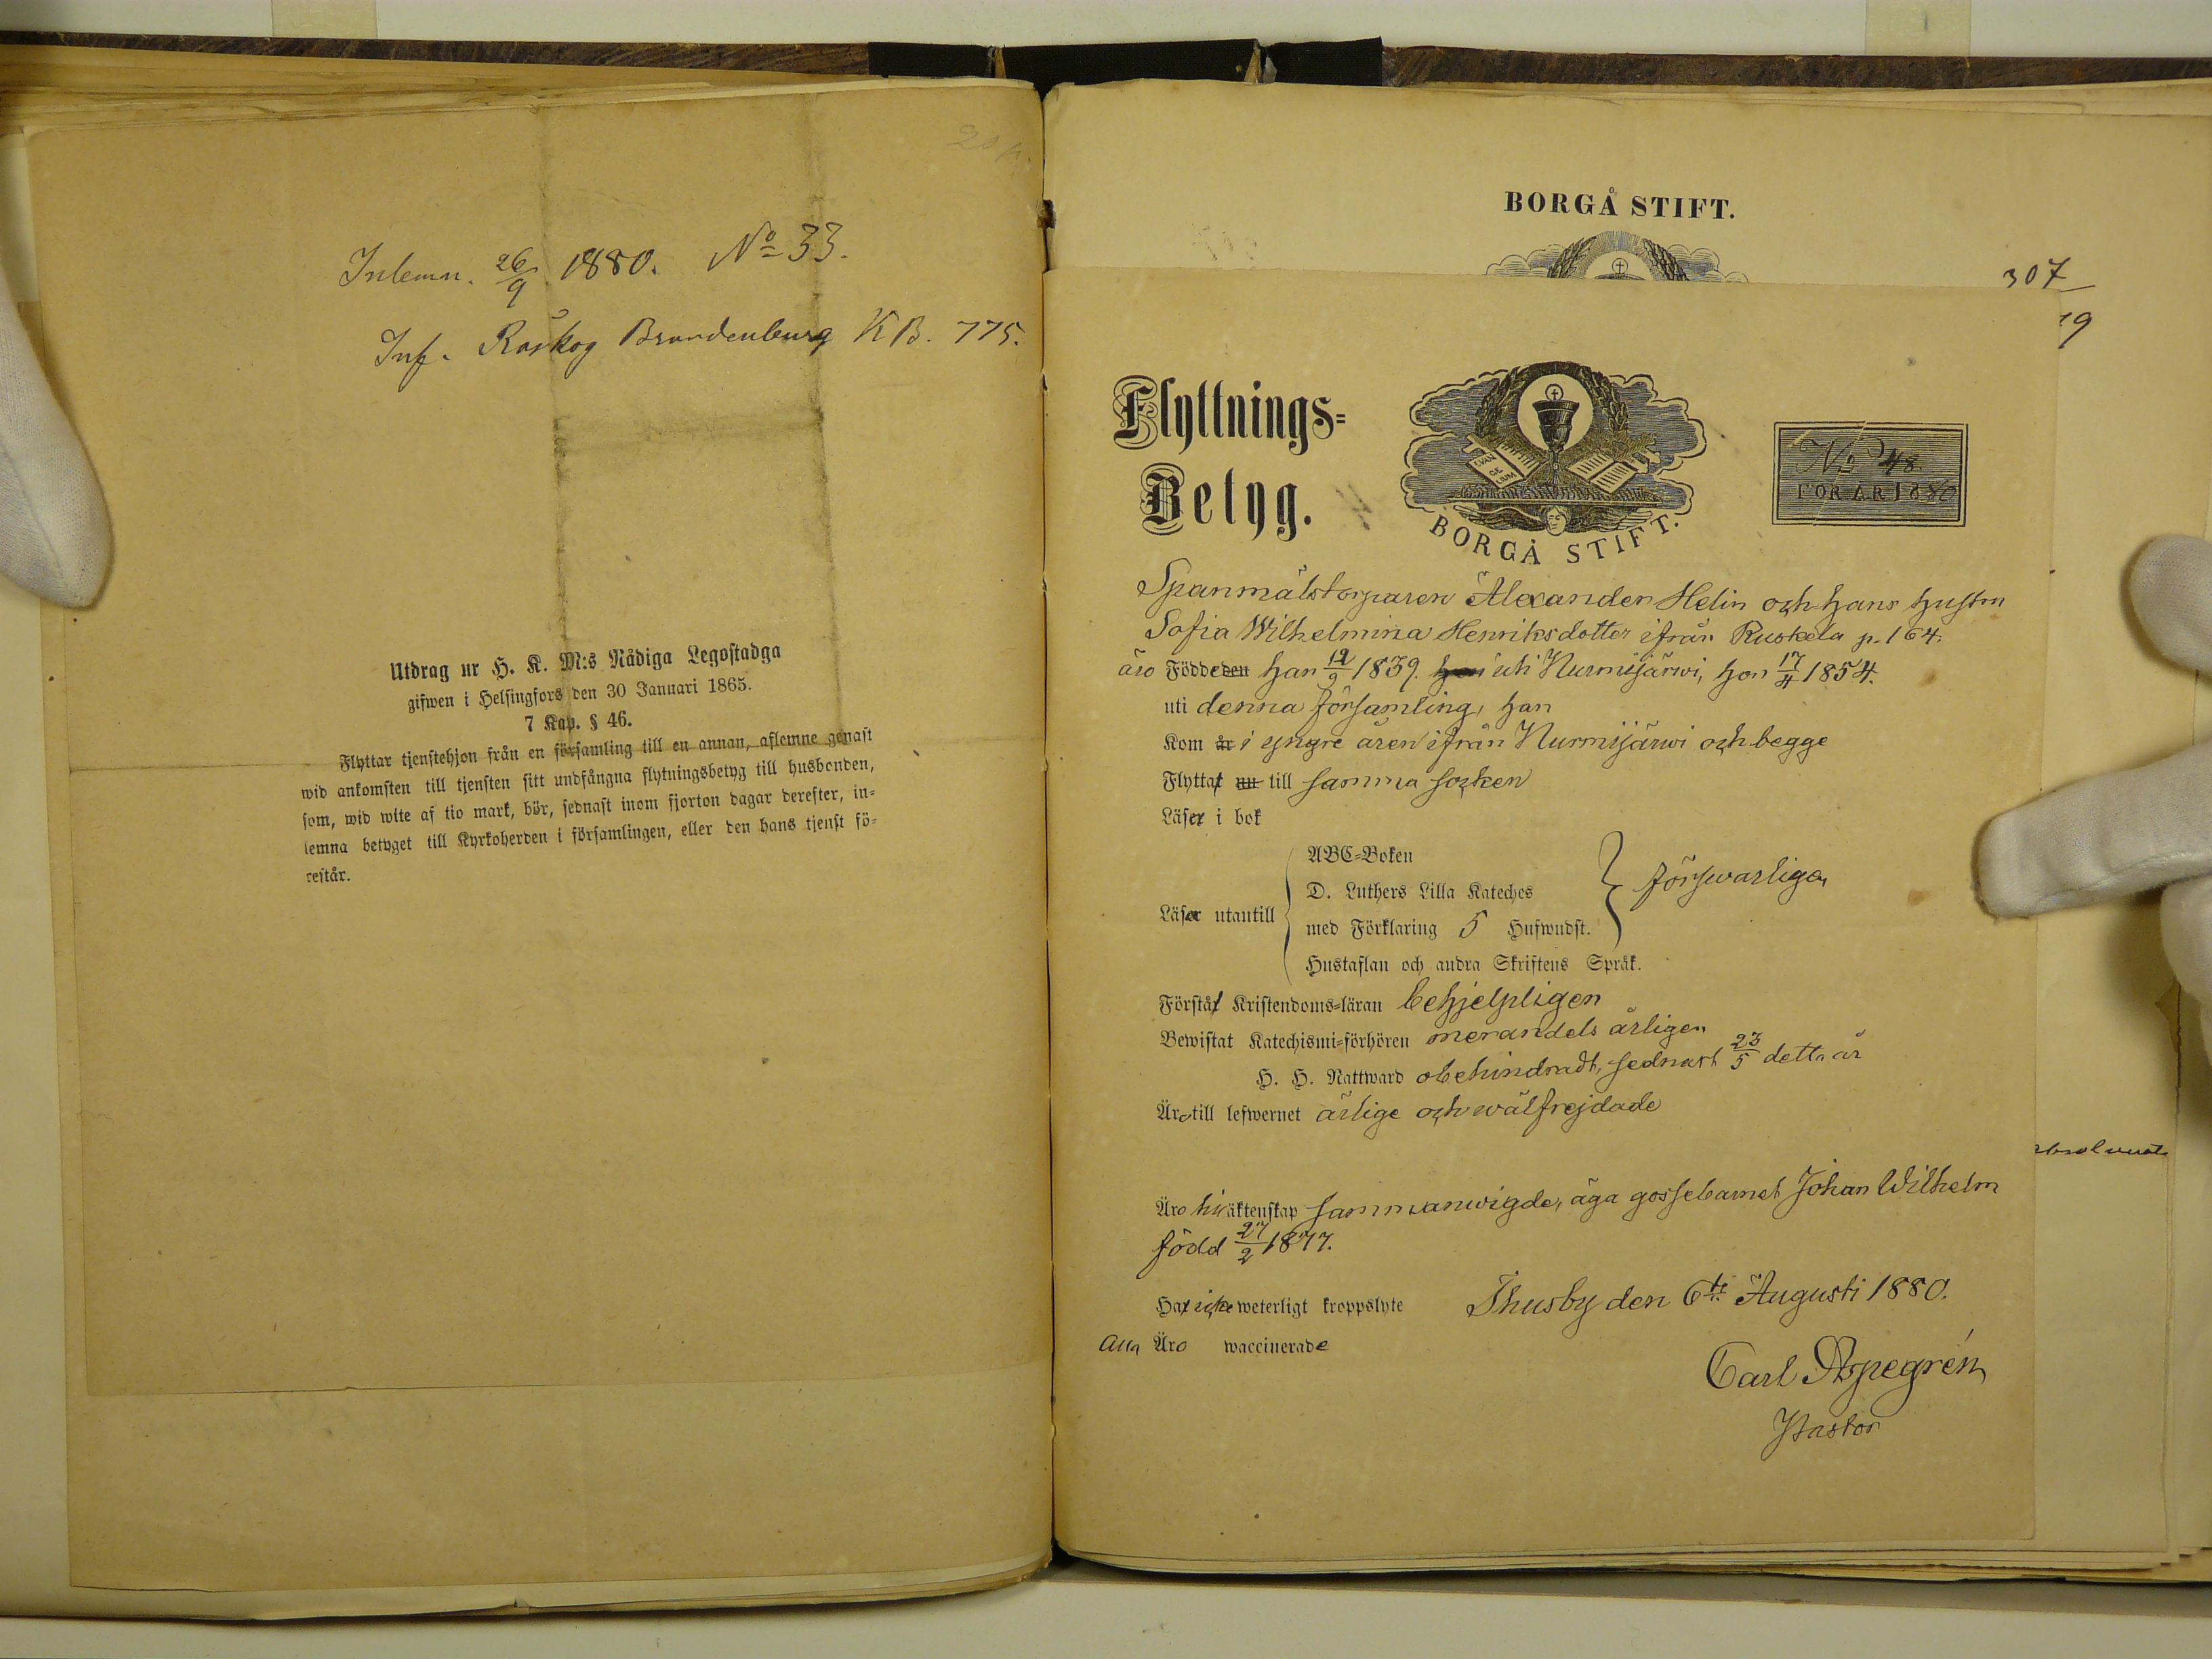 20 p.
Inlemn. 26/9 1880. No 33.
Inf. Råskog Brandenburg KB. 775.
Utdrag ur H. K. M:s Nådiga Legostadga
gifwen i Helsingfors den 30 Januari 1865.
7 Kap. § 46.
Flyttar tjenstehjon från en församling till en annan, aflemne genast
wid ankomsten till tjensten sitt undfångna flytningsbetyg till husbonden,
som, wid wite af tio mark, bör, sednast inom fjorton dagar derefter, in-
lemna betyget till Kyrkoherden i församlingen, eller den hans tjenst fö-
restår.
BORGÅ STIFT.
307
19
Flyttnings-
Betyg.
EVAN
GE
LIUM
BORGÅ STIFT.
No 48.
FÖR ÅR 1880
Spanmålstorparen Alexander Helin och hans hustru
Sofia Wilhelmina Henriksdotter ifrån Ruskela p. 164.
äro Födde den han 12/9 1839. uti Nurmijärwi, hon 17/4 1854.
uti denna församling, han
Kom år i yngre åren ifrån Nurmijärwi och begge
Flyttat nu till samma socken
Läser i bok
ABC-Boken
D. Luthers Lilla Kateches
försvarligen
Läser utantill
med Förklaring 5 Hufwudst.
Hustaflan och andra Skriftens Språk.
Förstår Kristendoms-läran behjelpligen
Bewistat Katechismi-förhören merandels årligen
H. H. Nattward obehindradt, sednast 23/5 detta år
Äro till lefwernet ärlige och wälfrejdade
absolverat
Äro till äktenskap sammanwigde, äga gossebarnet Johan Wilhelm
född 27/2 1877.
Har icke weterligt kroppslyte Thusby den 6te Augusti 1880.
Alla Äro waccinerade
Carl Aspegrén
Pastor